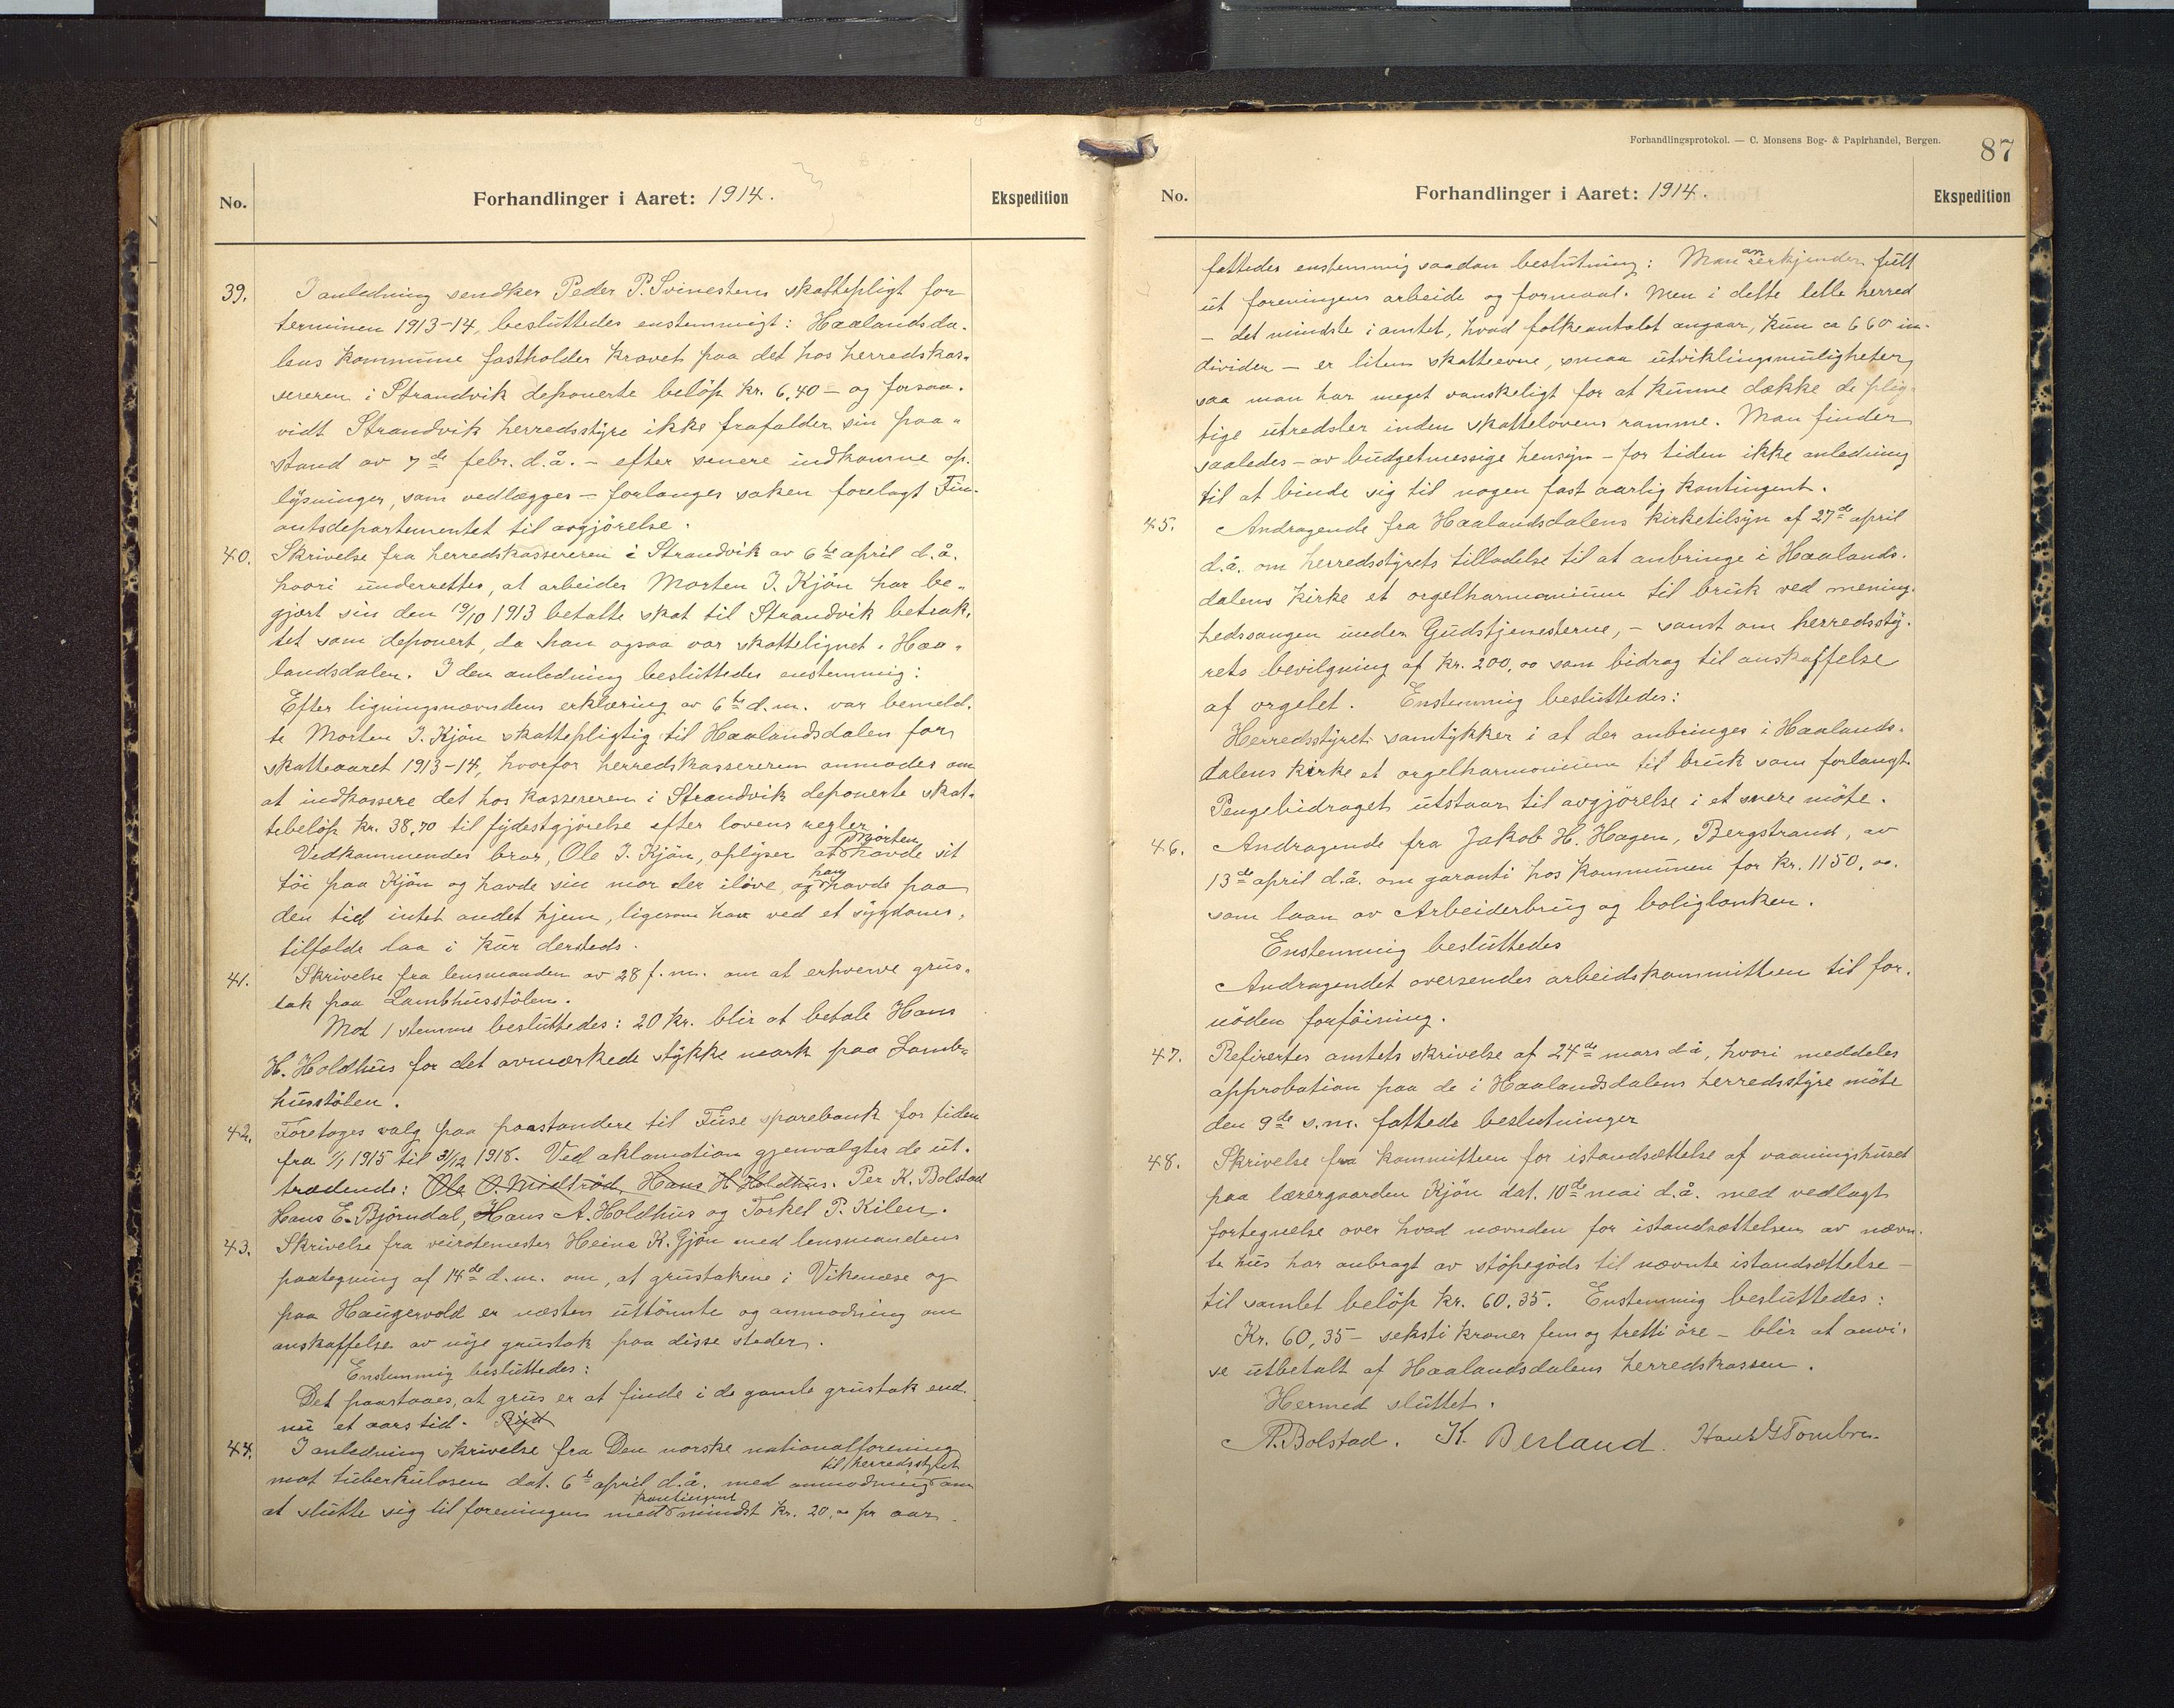 No.
Forhandlinger i Aaret: 1914.
Ekspedition
39.
I anledning vendker Peder P. Svinestens skattepligt for
terminen 1913-14, besluttedes enstemmigt: Haalandsda-
lens kommune fastholder kravet paa det hos herredskas-
sereren i Strandvik deponerte beløp kr. 6,40 – og forsaa-
vidt Strandvik herredsstyre ikke frafalder sin paa-
stand av 7de febr. d.å. – efter senere indkomne op-
lysninger, som vedlægges – forlanges saken forelagt Fin-
antsdepartementet til avgjørelse.
40.
Skrivelse fra herredskassereren i Strandvik av 6te april d.å.
hvori underrettes, at arbeider Morten J. Kjön har be-
gjært sin den 19/10 1913 betalte skat til Strandvik betrak-
tet som deponert, da han ogsaa var skattelignet i Haa-
landsdalen. I den anledning besluttedes enstemmig:
Efter ligningsnævndens erklæring av 6te d.m. var bemeld-
te Morten J. Kjön skattepligtig til Haalandsdalen for
skatteaaret 1913-14, hvorfor herredskassereren anmodes om
at indkassere det hos kassereren i Strandvik deponerte skat-
tebeløp kr. 38,70 til fyldestgjørelse efter lovens regler.
Vedkommendes bror, Ole J. Kjön, oplyser at Morten havde sit
töi paa Kjön og havde sin mor der ilive, og han havde paa
den tid intet andet hjem, ligesom han ved et sygdoms-
tilfælde laa i kur dersteds.
41.
Skrivelse fra lensmanden av 28 f.m. om at erhverve grus-
tak paa Lambhusstölen.
Mot 1 stemme besluttedes: 20 kr. blir at betale Hans
H. Holdhus for det avmærkede stykke mark paa Lamb-
husstölen.
42.
Foretages valg paa forstandere til Fuse sparebank for tiden
fra 1/1 1915 til 31/12 1918. Ved aklamation gjenvalgtes de ut-
trædende: Ole O. Midtröd, Hans H Holdhus. Per K. Bolstad
Hans E. Björndal, Hans A. Holdhus og Torkel P. Kilen.
43.
Skrivelse fra veirodemester Heine K. Gjön med lensmandens
paategning af 14de d.m. om, at grustakene i Vikenæse og
paa Haugervold er næsten uttömte og anmodning om
anskaffelse av nye grustak paa disse steder.
Enstemmig besluttedes:
Det paastaaes, at grus er at finde i de gamle grustak end-
nu et aars tid.
44.
I anledning skrivelse fra Den norske nationalforening
mot tuberkulosen dat. 6te april d.å. med anmodning til herredsstyret om
at slutte sig til foreningen med kontingent mindst kr. 20,00 pr aar
Forhandlingsprotokol. — C. Monsens Bog- & Papirhandel, Bergen.
87
No.
Forhandlinger i Aaret: 1914.
Ekspedition
fattedes enstemmig saadan beslutning: Man anerkjender fullt
ut foreningens arbeide og formaal. Men i dette lille herred
– det mindste i amtet, hvad folkeantalet angaar, kun ca 660 in-
divider – er liten skatteevne, smaa utviklingsmuligheter,
saa man har meget vanskeligt for at kunne dække de plig-
tige utredsler inden skattelovens ramme. Man finder
saaledes – av budgetmessige hensyn – for tiden ikke anledning
til at binde sig til nogen fast aarlig kontingent.
45.
Andragende fra Haalandsdalens kirketilsyn af 27de april
d.å. om herredsstyrets tilladelse til at anbringe i Haalands-
dalens kirke et orgelharmonium til bruk ved menig-
hedssangen under Gudstjenesterne, – samt om herredssty-
rets bevilgning af kr. 200,00 som bidrag til anskaffelse
af orgelet. Enstemmig besluttedes:
Herredsstyret samtykker i at der anbringes i Haalands-
dalens kirke et orgelharmonium til bruk som forlangt.
Pengebidraget utstaar til avgjörelse i et senere möte.
46.
Andragende fra Jakob H. Hagen, Bergstrand, av
13de april d.å. om garanti hos kommunen for kr. 1150,00.
som laan av Arbeiderbrug og boligbanken.
Enstemmig besluttedes
Andragendet oversendes arbeidskommitteen til for-
nöden forföining.
47.
Refirertes amtets skrivelse af 24de mars d.å, hvori meddeles
approbation paa de i Haalandsdalens herredsstyre möte
den 9de s.m. fattede beslutninger
48.
Skrivelse fra kommitteen for istandsættelse af vaaningshuset
paa lærergaarden Kjön dat. 10de mai d.å. med vedlagt
fortegnelse over hvad nævnden for istandsættelsen av nævn-
te hus har anbragt av stöpegods til nævnte istandsættelse –
til samlet belöp kr. 60.35. Enstemmig besluttedes:
Kr. 60,35 – seksti kroner fem og tretti öre – blir at anvi-
se utbetalt af Haalandsdalens herredskassen.
Hermed sluttet.
P. Bolstad. K. Berland. Hans G Tombre.